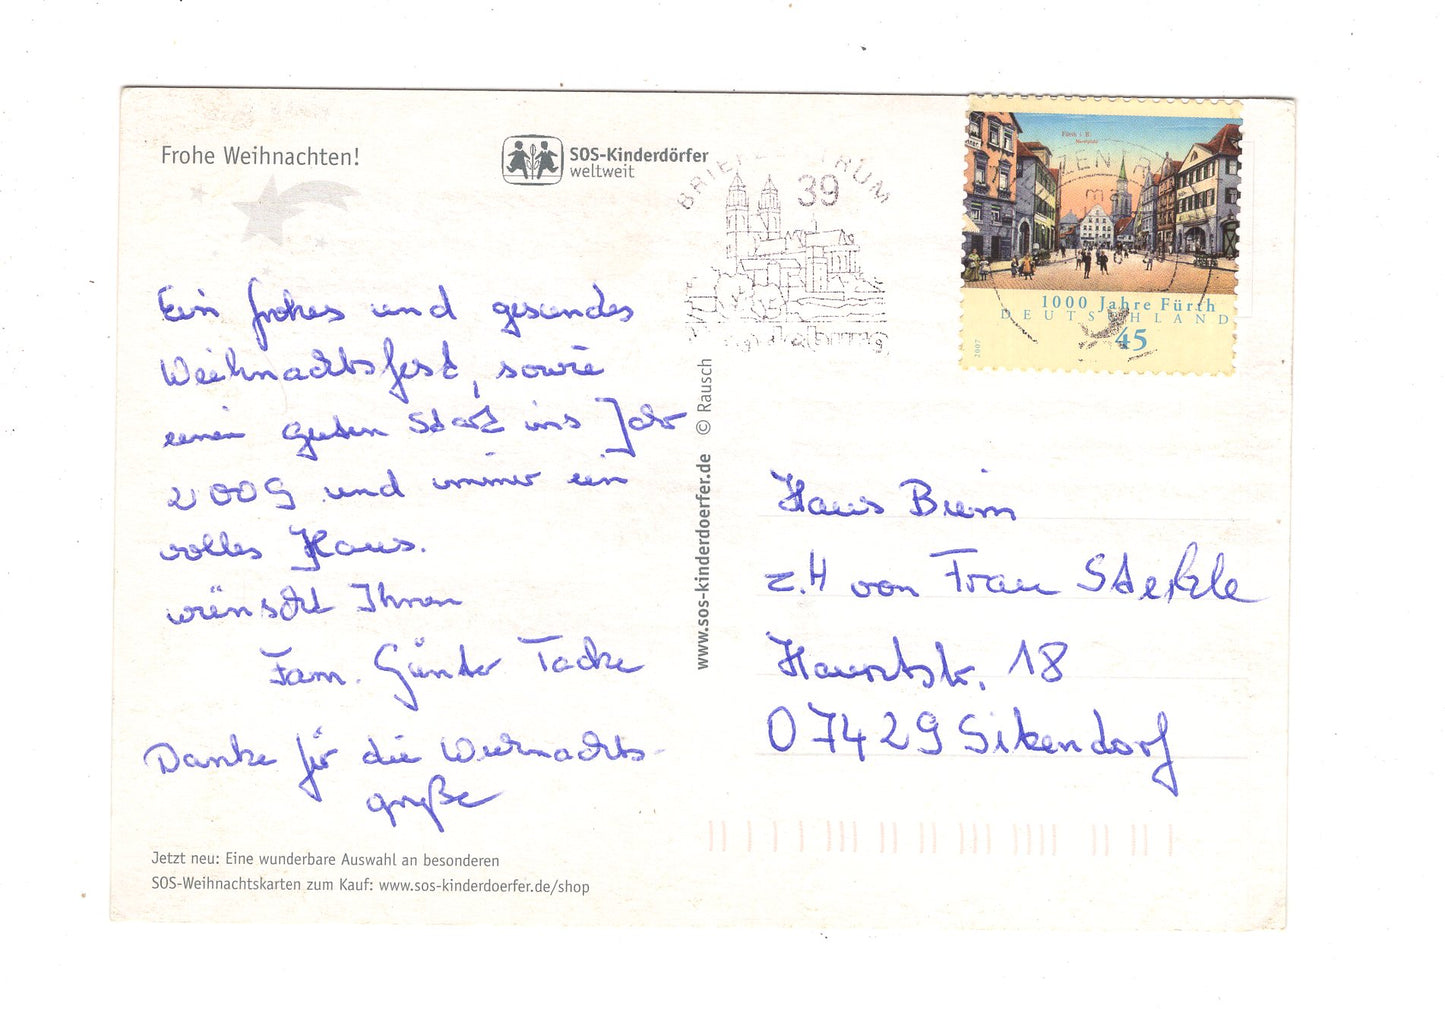 Frohe Weihnachten!
SOS-Kinderdörfer
weltweit
BRIEFZENTRUM
39
Fürth i. B.
1000 Jahre Fürth
DEUTSCHLAND
45
2007
Ein frohes und gesundes
Weihnachtsfest, sowie
einen guten Start ins Jahr
2009 und immer ein
volles Haus.
wünscht Ihnen
Fam. Günter Tacke
Danke für die Weihnachts-
grüße
www.sos-kinderdoerfer.de © Rausch
Haus Brim
z.H von Frau Sterkle
Hauptstr. 18
07429 Sitzendorf
Jetzt neu: Eine wunderbare Auswahl an besonderen
SOS-Weihnachtskarten zum Kauf: www.sos-kinderdoerfer.de/shop